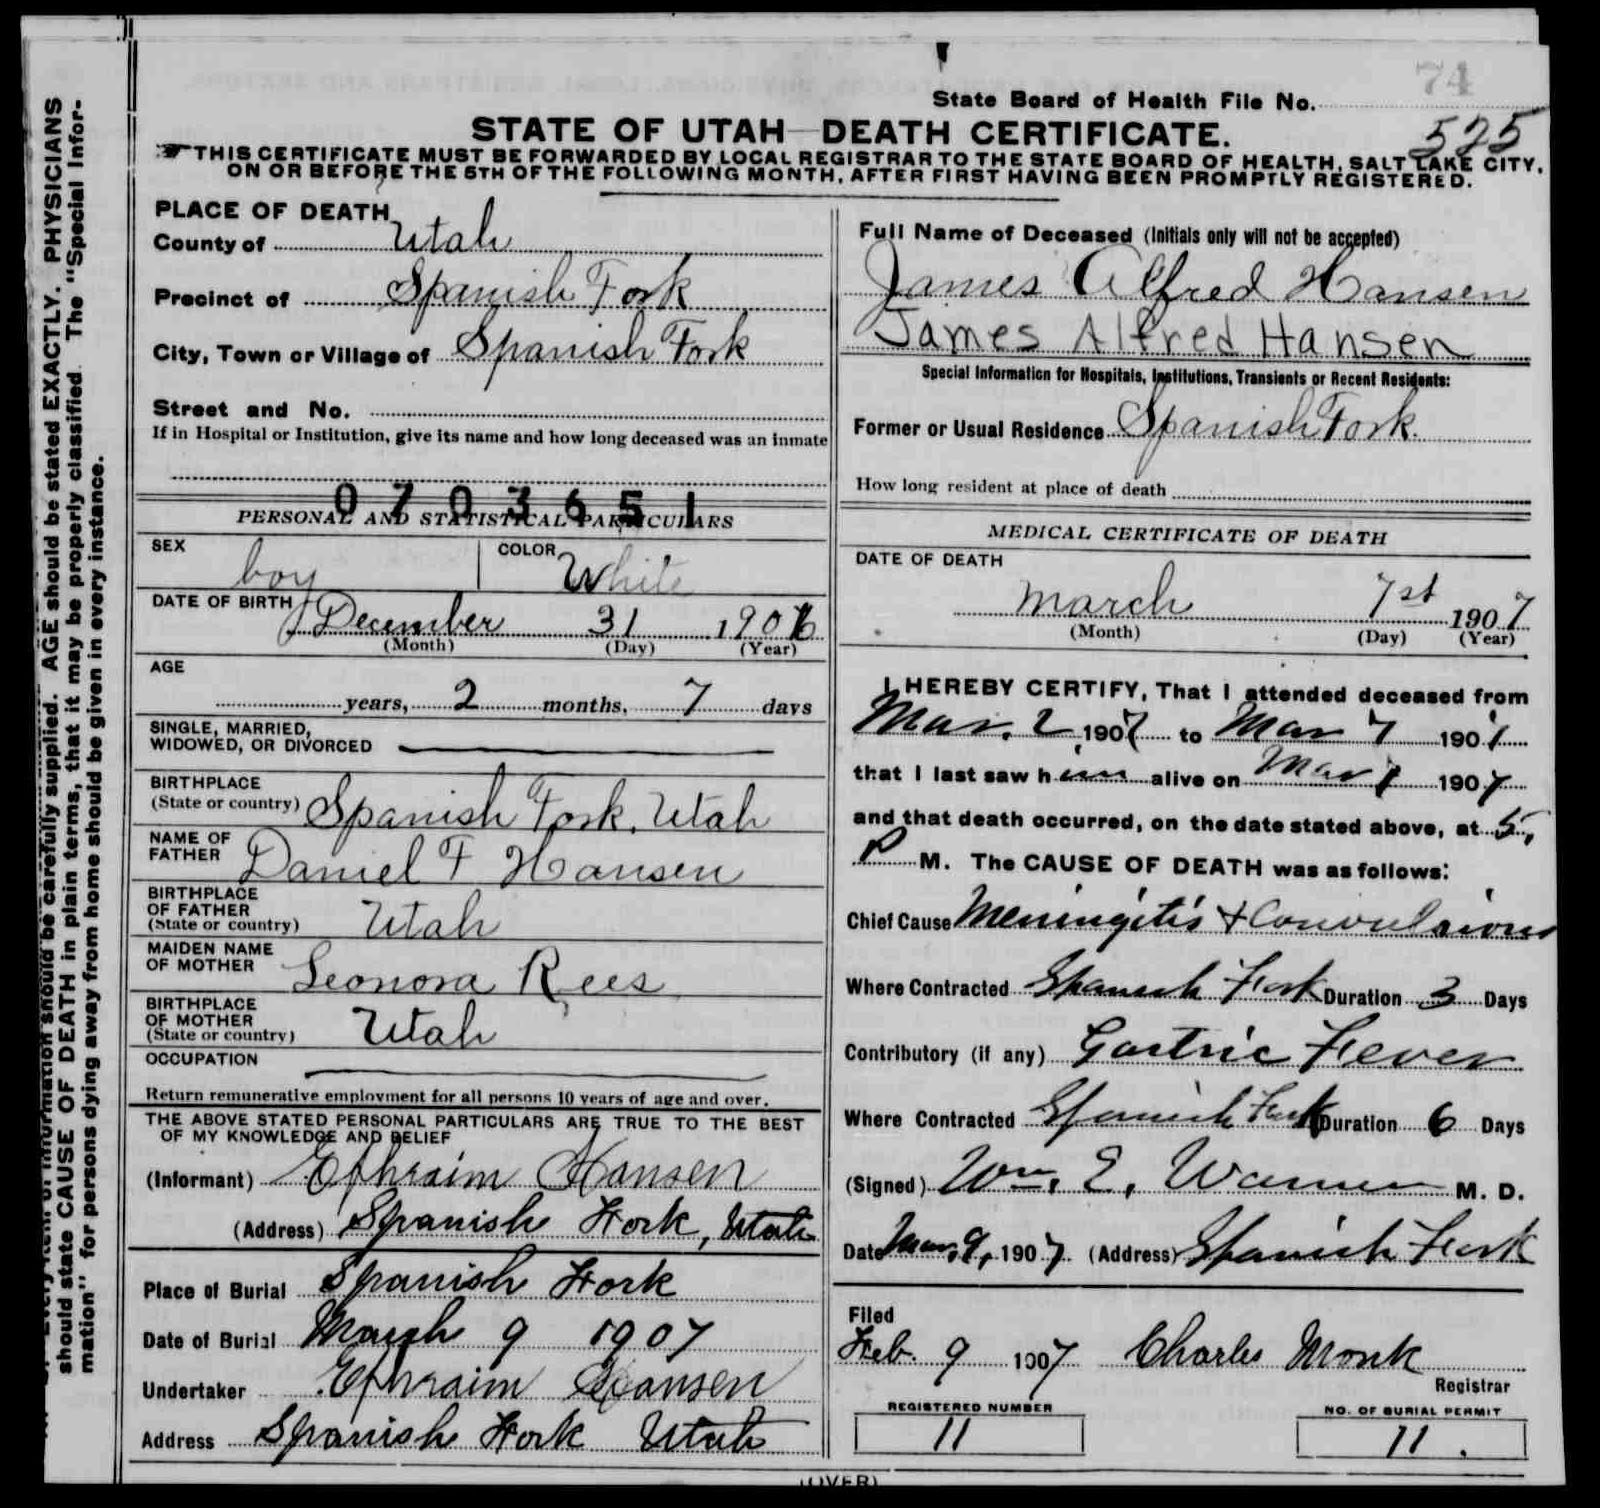 74
State Board of Health File No.
525
STATE OF UTAH—DEATH CERTIFICATE.
THIS CERTIFICATE MUST BE FORWARDED BY LOCAL REGISTRAR TO THE STATE BOARD OF HEALTH, SALT LAKE CITY,
ON OR BEFORE THE 5TH OF THE FOLLOWING MONTH, AFTER FIRST HAVING BEEN PROMPTLY REGISTERED.
PLACE OF DEATH
County of Utah
Precinct of Spanish Fork
City, Town or Village of Spanish Fork
Street and No.
If in Hospital or Institution, give its name and how long deceased was an inmate
0703651
PERSONAL AND STATISTICAL PARTICULARS
SEX boy COLOR White
DATE OF BIRTH December 31 1906
(Month) (Day) (Year)
AGE
years, 2 months, 7 days
SINGLE, MARRIED,
WIDOWED, OR DIVORCED
BIRTHPLACE
(State or country) Spanish Fork, Utah
NAME OF
FATHER Daniel F Hansen
BIRTHPLACE
OF FATHER
(State or country) Utah
MAIDEN NAME
OF MOTHER Leonora Rees
BIRTHPLACE
OF MOTHER
(State or country) Utah
OCCUPATION
Return remunerative employment for all persons 10 years of age and over.
THE ABOVE STATED PERSONAL PARTICULARS ARE TRUE TO THE BEST
OF MY KNOWLEDGE AND BELIEF
(Informant) Ephraim Hansen
(Address) Spanish Fork, Utah
Place of Burial Spanish Fork
Date of Burial March 9 1907
Undertaker Ephraim Hansen
Address Spanish Fork Utah
Full Name of Deceased (Initials only will not be accepted)
James Alfred Hansen
James Alfred Hansen
Special Information for Hospitals, Institutions, Transients or Recent Residents:
Former or Usual Residence Spanish Fork.
How long resident at place of death
MEDICAL CERTIFICATE OF DEATH
DATE OF DEATH
March 7st 1907
(Month) (Day) (Year)
I HEREBY CERTIFY, That I attended deceased from
Mar. 2 1907 to Mar 7 1907
that I last saw him alive on Mar 7 1907
and that death occurred, on the date stated above, at 5,
P M. The CAUSE OF DEATH was as follows:
Chief Cause Meningitis & Convulsions
Where Contracted Spanish Fork Duration 3 Days
Contributory (if any) Gastric Fever
Where Contracted Spanish Fork Duration 6 Days
(Signed) Wm. E. Warner M. D.
Date Mar, 9, 1907 (Address) Spanish Fork
Filed
Feb. 9 1907 Charles Monk
Registrar
REGISTERED NUMBER
11
NO. OF BURIAL PERMIT
11.
(OVER)
Every item of information should be carefully supplied. AGE should be stated EXACTLY. PHYSICIANS
should state CAUSE OF DEATH in plain terms, that it may be properly classified. The "Special Infor-
mation" for persons dying away from home should be given in every instance.